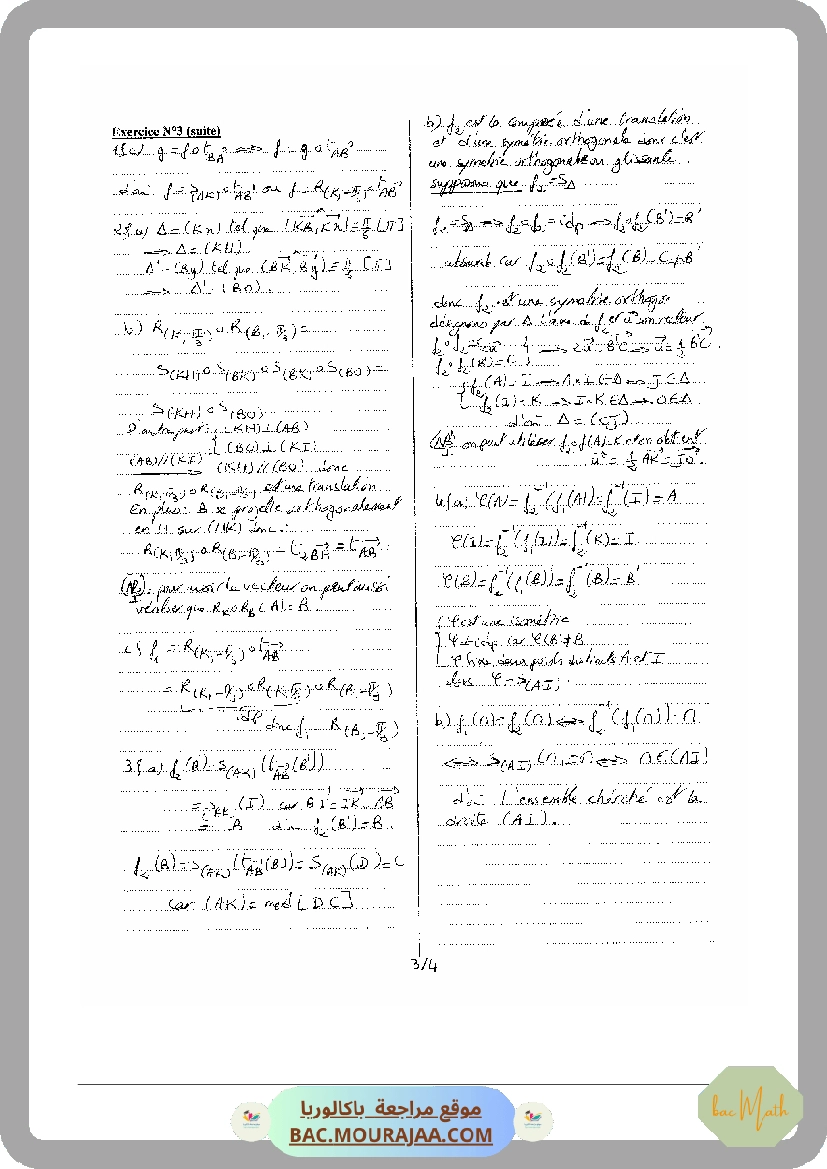 Exercice N°3 (suite)
1) c) g = f o t_BA ⟹ f = g o t_AB
d'où f = S_(AK) o t_AB ou f = R_(K,-π/3) o t_AB
2) a) Δ = (Kx) tel que (KB, Kx) ≡ π/6 [π]
⟹ Δ = (KH)
Δ' = (By) tel que (BK, By) ≡ [π]
⟹ Δ' = (BO).
b) R_(K,π/3) o R_(B,-π/3) =
S_(KH) o S_(BK) o S_(BK) o S_(BO) =
S_(KH) o S_(BO)
D'autre part: (KH) ⊥ (AB)
(BO) ⊥ (KI)
(AB)//(KI) (KH)//(BO) donc
R_(K,π/3) o R_(B,-π/3) est une translation
En plus: B se projette orthogonalement
en H sur (HK) donc:
R_(K,π/3) o R_(B,-π/3) = t_2BH = t_AB
: pour avoir le vecteur on peut aussi
vérifier que R_K o R_B (A) = B
c) f₁ = R_(K,-π/3) o t_AB
= R_(K,-π/3) o R_(K,π/3) o R_(B,-π/3)
donc f₁ = R_(B,-π/3)
3) a) f₂(B') = S_(AK)(t_AB(B'))
= S_(AK)(I) car B'I = IK = AB
= B d'où f₂(B') = B.
f₂(B) = S_(AK)(t_AB(B)) = S_(AK)(D) = C
car (AK) = med [DC]
b) f₂ est la composée d'une translation
et d'une symétrie orthogonale donc c'est
une symétrie orthogonale ou glissante.
supposons que f₂ = S_Δ
f₂ = S_Δ ⟹ f₂ o f₂ = idp ⟹ f₂ o f₂(B') = B'
absurde car f₂ o f₂(B') = f₂(B) = C ≠ B'
donc f₂ est une symétrie
désignons par Δ l'axe de f₂ et u son vecteur
f₂ o f₂ = t_2u ⟹ 2u = B'C ⟹ u = ½ B'C.
f₂ o f₂(B') = C
f₂(A) = I ⟹ A * I ∈ Δ ⟹ J ∈ Δ
f₂(I) = K ⟹ I * K ∈ Δ ⟹ O ∈ Δ
d'où Δ = (OJ)
on peut utiliser f₂ o f₂(A) = K et on obtient
u = ½ AK = IO.
4) a) φ(A) = f₂⁻¹(f₁(A)) = f₂⁻¹(I) = A
φ(I) = f₂⁻¹(f₁(I)) = f₂⁻¹(K) = I
φ(B) = f₂⁻¹(f₁(B)) = f₂⁻¹(B) = B'
φ est une isométrie
φ ≠ idp car φ(B) ≠ B
φ fixe deux points distincts A et I
donc φ = S_(AI)
b) f₁(M) = f₂(M) ⟺ f₂⁻¹(f₁(M)) = M
⟺ S_(AI)(M) = M ⟺ M ∈ (AI)
d'où l'ensemble cherché est la
droite (AI).
3/4
موقع مراجعة باكالوريا
BAC.MOURAJAA.COM
bac Math